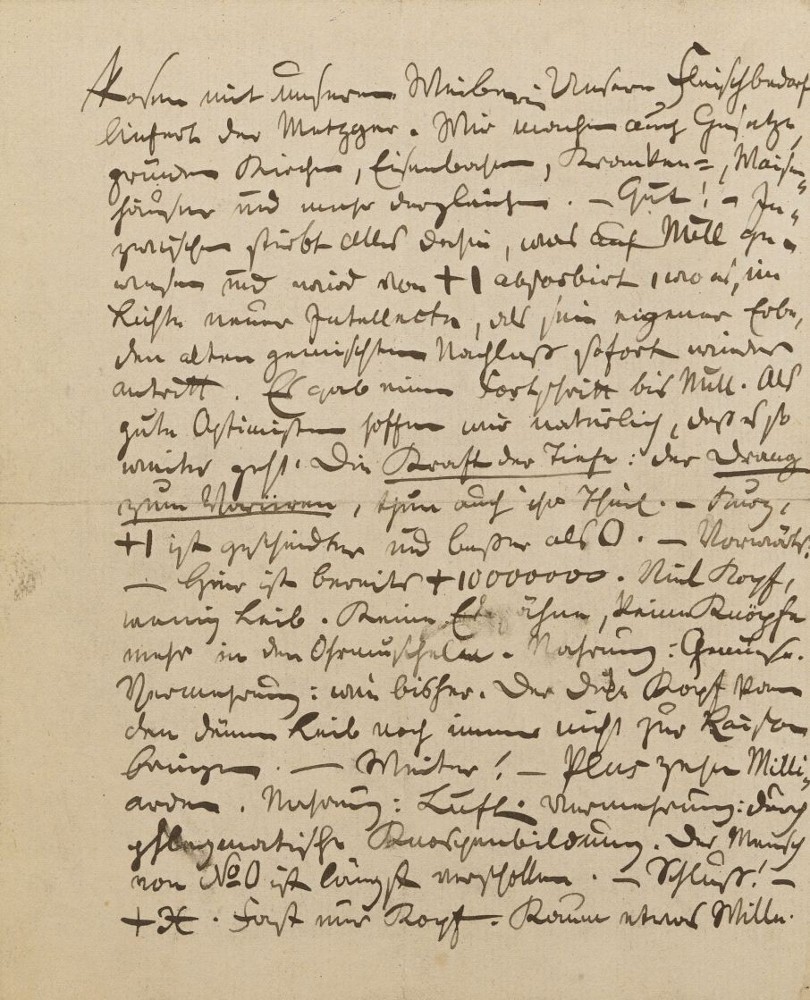 kosen mit unseren Weibern. Unsern Fleischbedarf
liefert der Metzger. Wir machen auch Gesetze,
gründen Kirchen, Eisenbahnen, Kranken=, Waisen-
häuser und mehr dergleichen. – Gut! – In-
zwischen stirbt alles dahin, was auf Null ge-
wesen und wird von +1 absorbirt, wo es, im
Lichte neuer Intellecte, als sein eigener Erbe,
den alten gemischten Nachlaß sofort wieder
antritt. Es gab einen Fortschritt bis Null. Als
gute Optimisten hoffen wir natürlich, daß es so
weiter geht. Die Kraft der Tiefe: der Drang
zum Variiren, thun auch ihr Theil. – Kurz,
+1 ist gescheidter und besser als 0. – Vorwärts!
– Hier ist bereits +10000000. Viel Kopf,
wenig Leib. Keine zähne, keine Knöpfe
mehr in den Ohrmuscheln. Nahrung: Gemüse.
Vermehrung: wie bisher. Der dicke Kopf kann
den dünnen Leib noch immer nicht zur Raison
bringen. – Weiter! – Plus zehn Milli-
arden. Nahrung: Luft. Vermehrung: durch
phlegmatische Knospenbildung. Der Mensch
von № 0 ist längst verschollen. – Schluß! –
+X. Fast nur Kopf. Kaum etwas Wille.